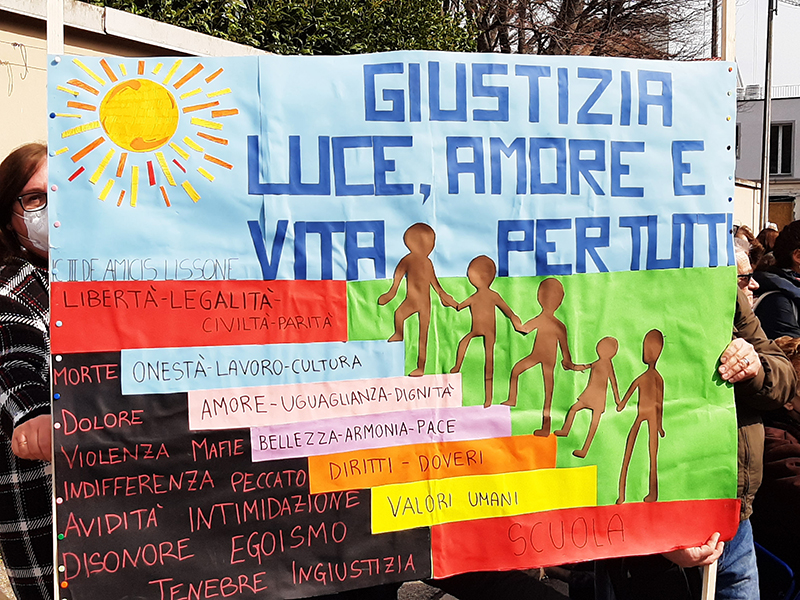 GIUSTIZIA
LUCE, AMORE E
VITA PER TUTTI
DE AMICIS LISSONE
LIBERTÀ-LEGALITÀ-
CIVILTÀ-PARITÀ
MORTE
ONESTÀ-LAVORO-CULTURA
AMORE-UGUAGLIANZA-DIGNITÀ
DOLORE
BELLEZZA-ARMONIA-PACE
VIOLENZA MAFIE
DIRITTI-DOVERI
INDIFFERENZA PECCATO
VALORI UMANI
AVIDITÀ INTIMIDAZIONE
SCUOLA
DISONORE EGOISMO
TENEBRE INGIUSTIZIA